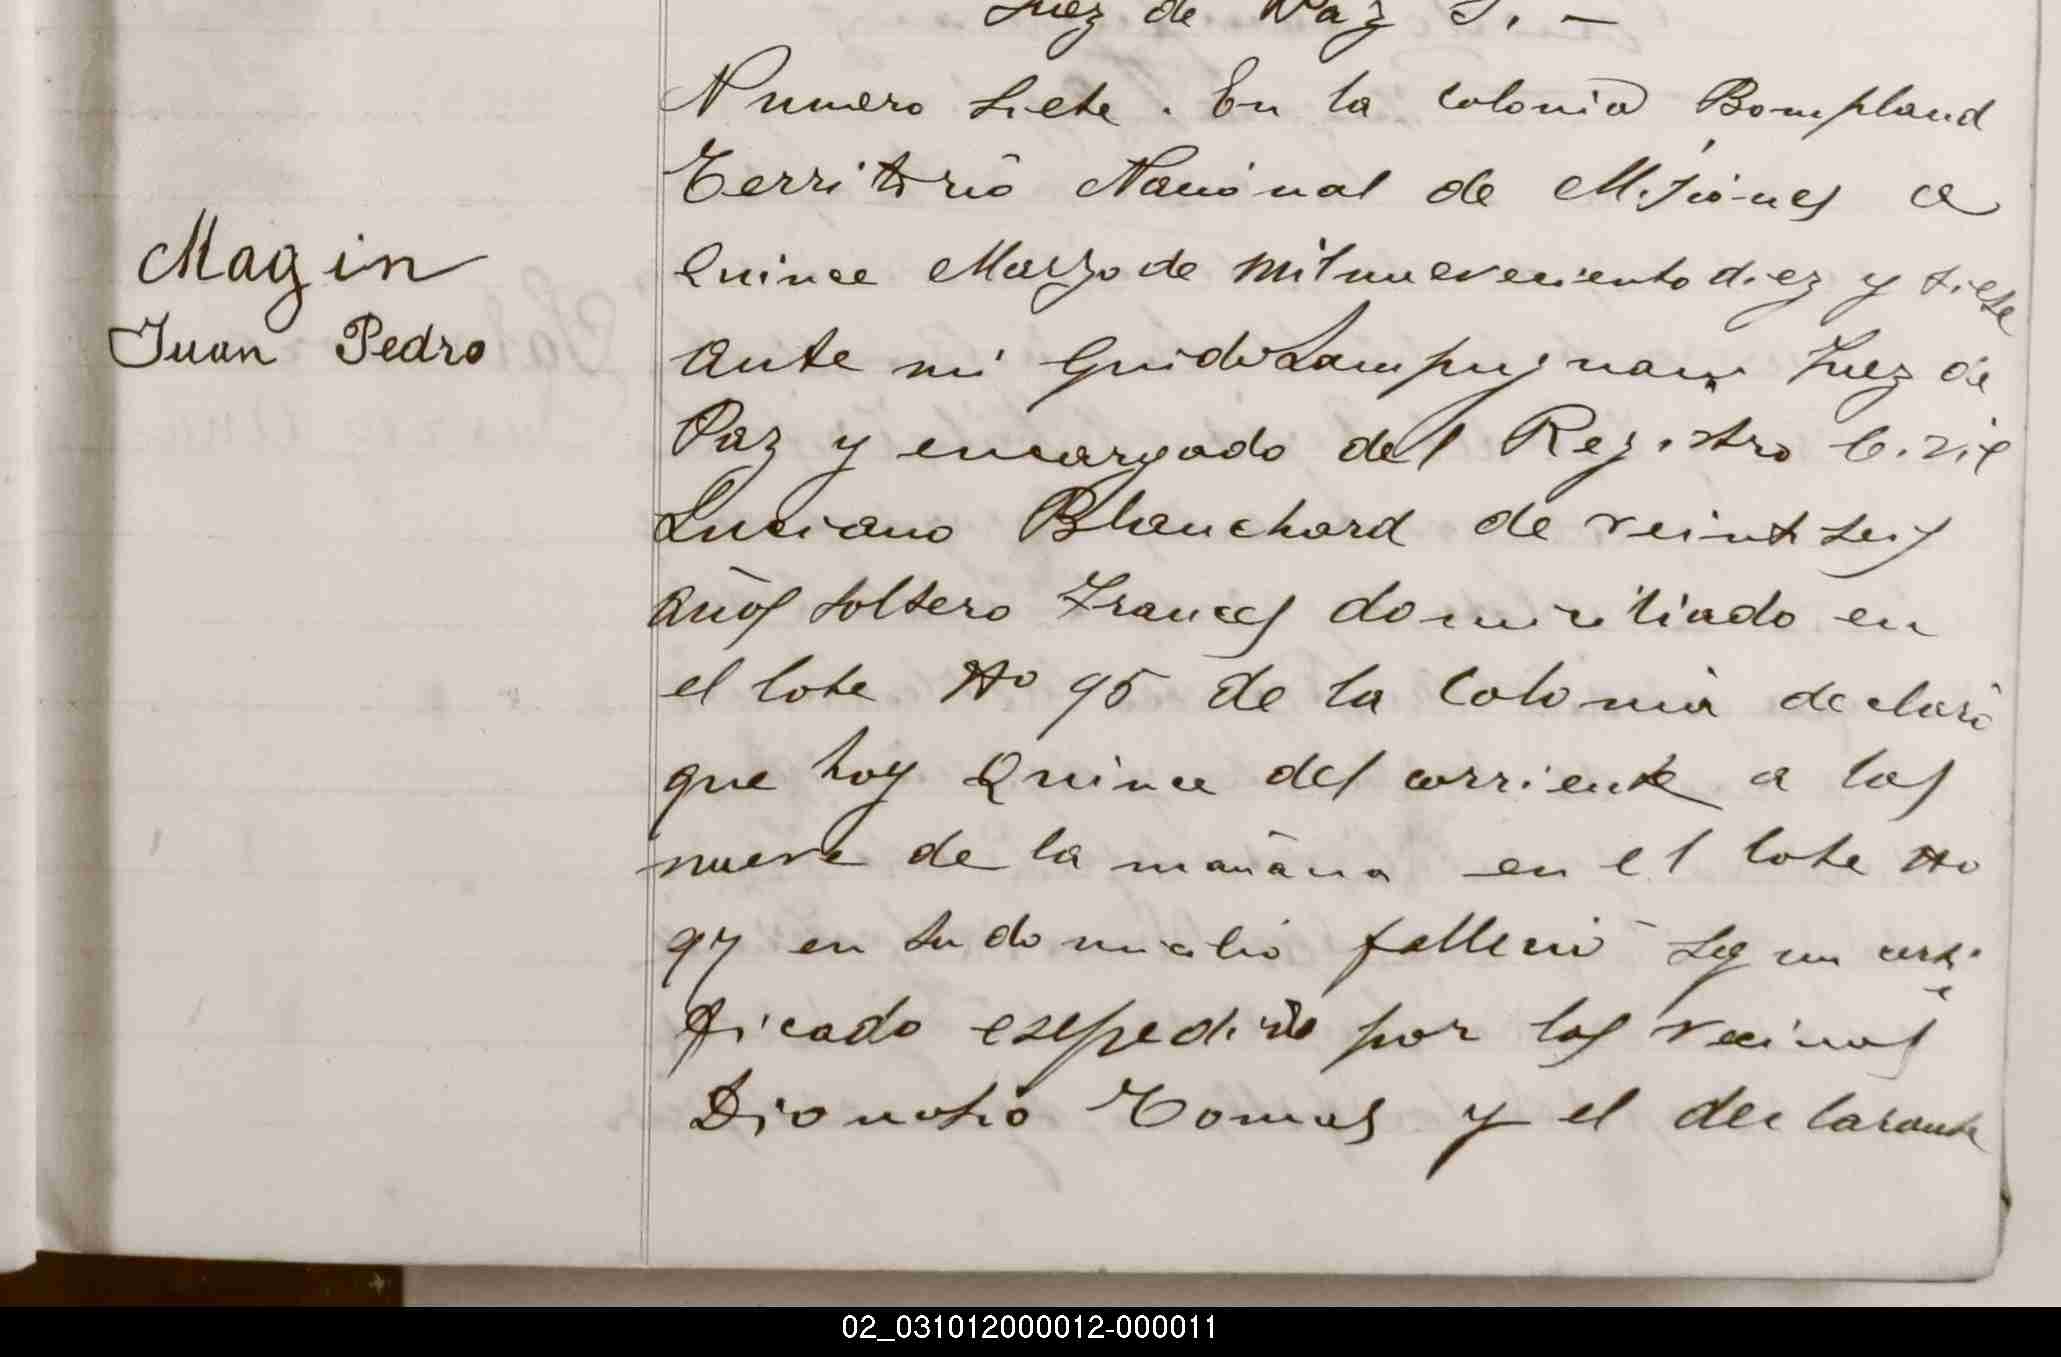 Juez de Paz S. —
Numero Siete. En la Colonia Bompland
Territorio Nacional de Misiones a
Quince Marzo de mil nueveciento diez y siete
Magin
Juan Pedro
ante mi Guido Lampugnani Juez de
Paz y encargado del Registro Civil
Luciano Blanchard de veinti seis
años soltero Frances domiciliado en
el lote No 95 de la Colonia declaró
que hoy Quince del corriente a las
nueve de la mañana en el lote No
97 en su domicilio falleció segun certi
ficado espedido por los vecinos
Dionisio Tomas y el declarante
02_031012000012-000011